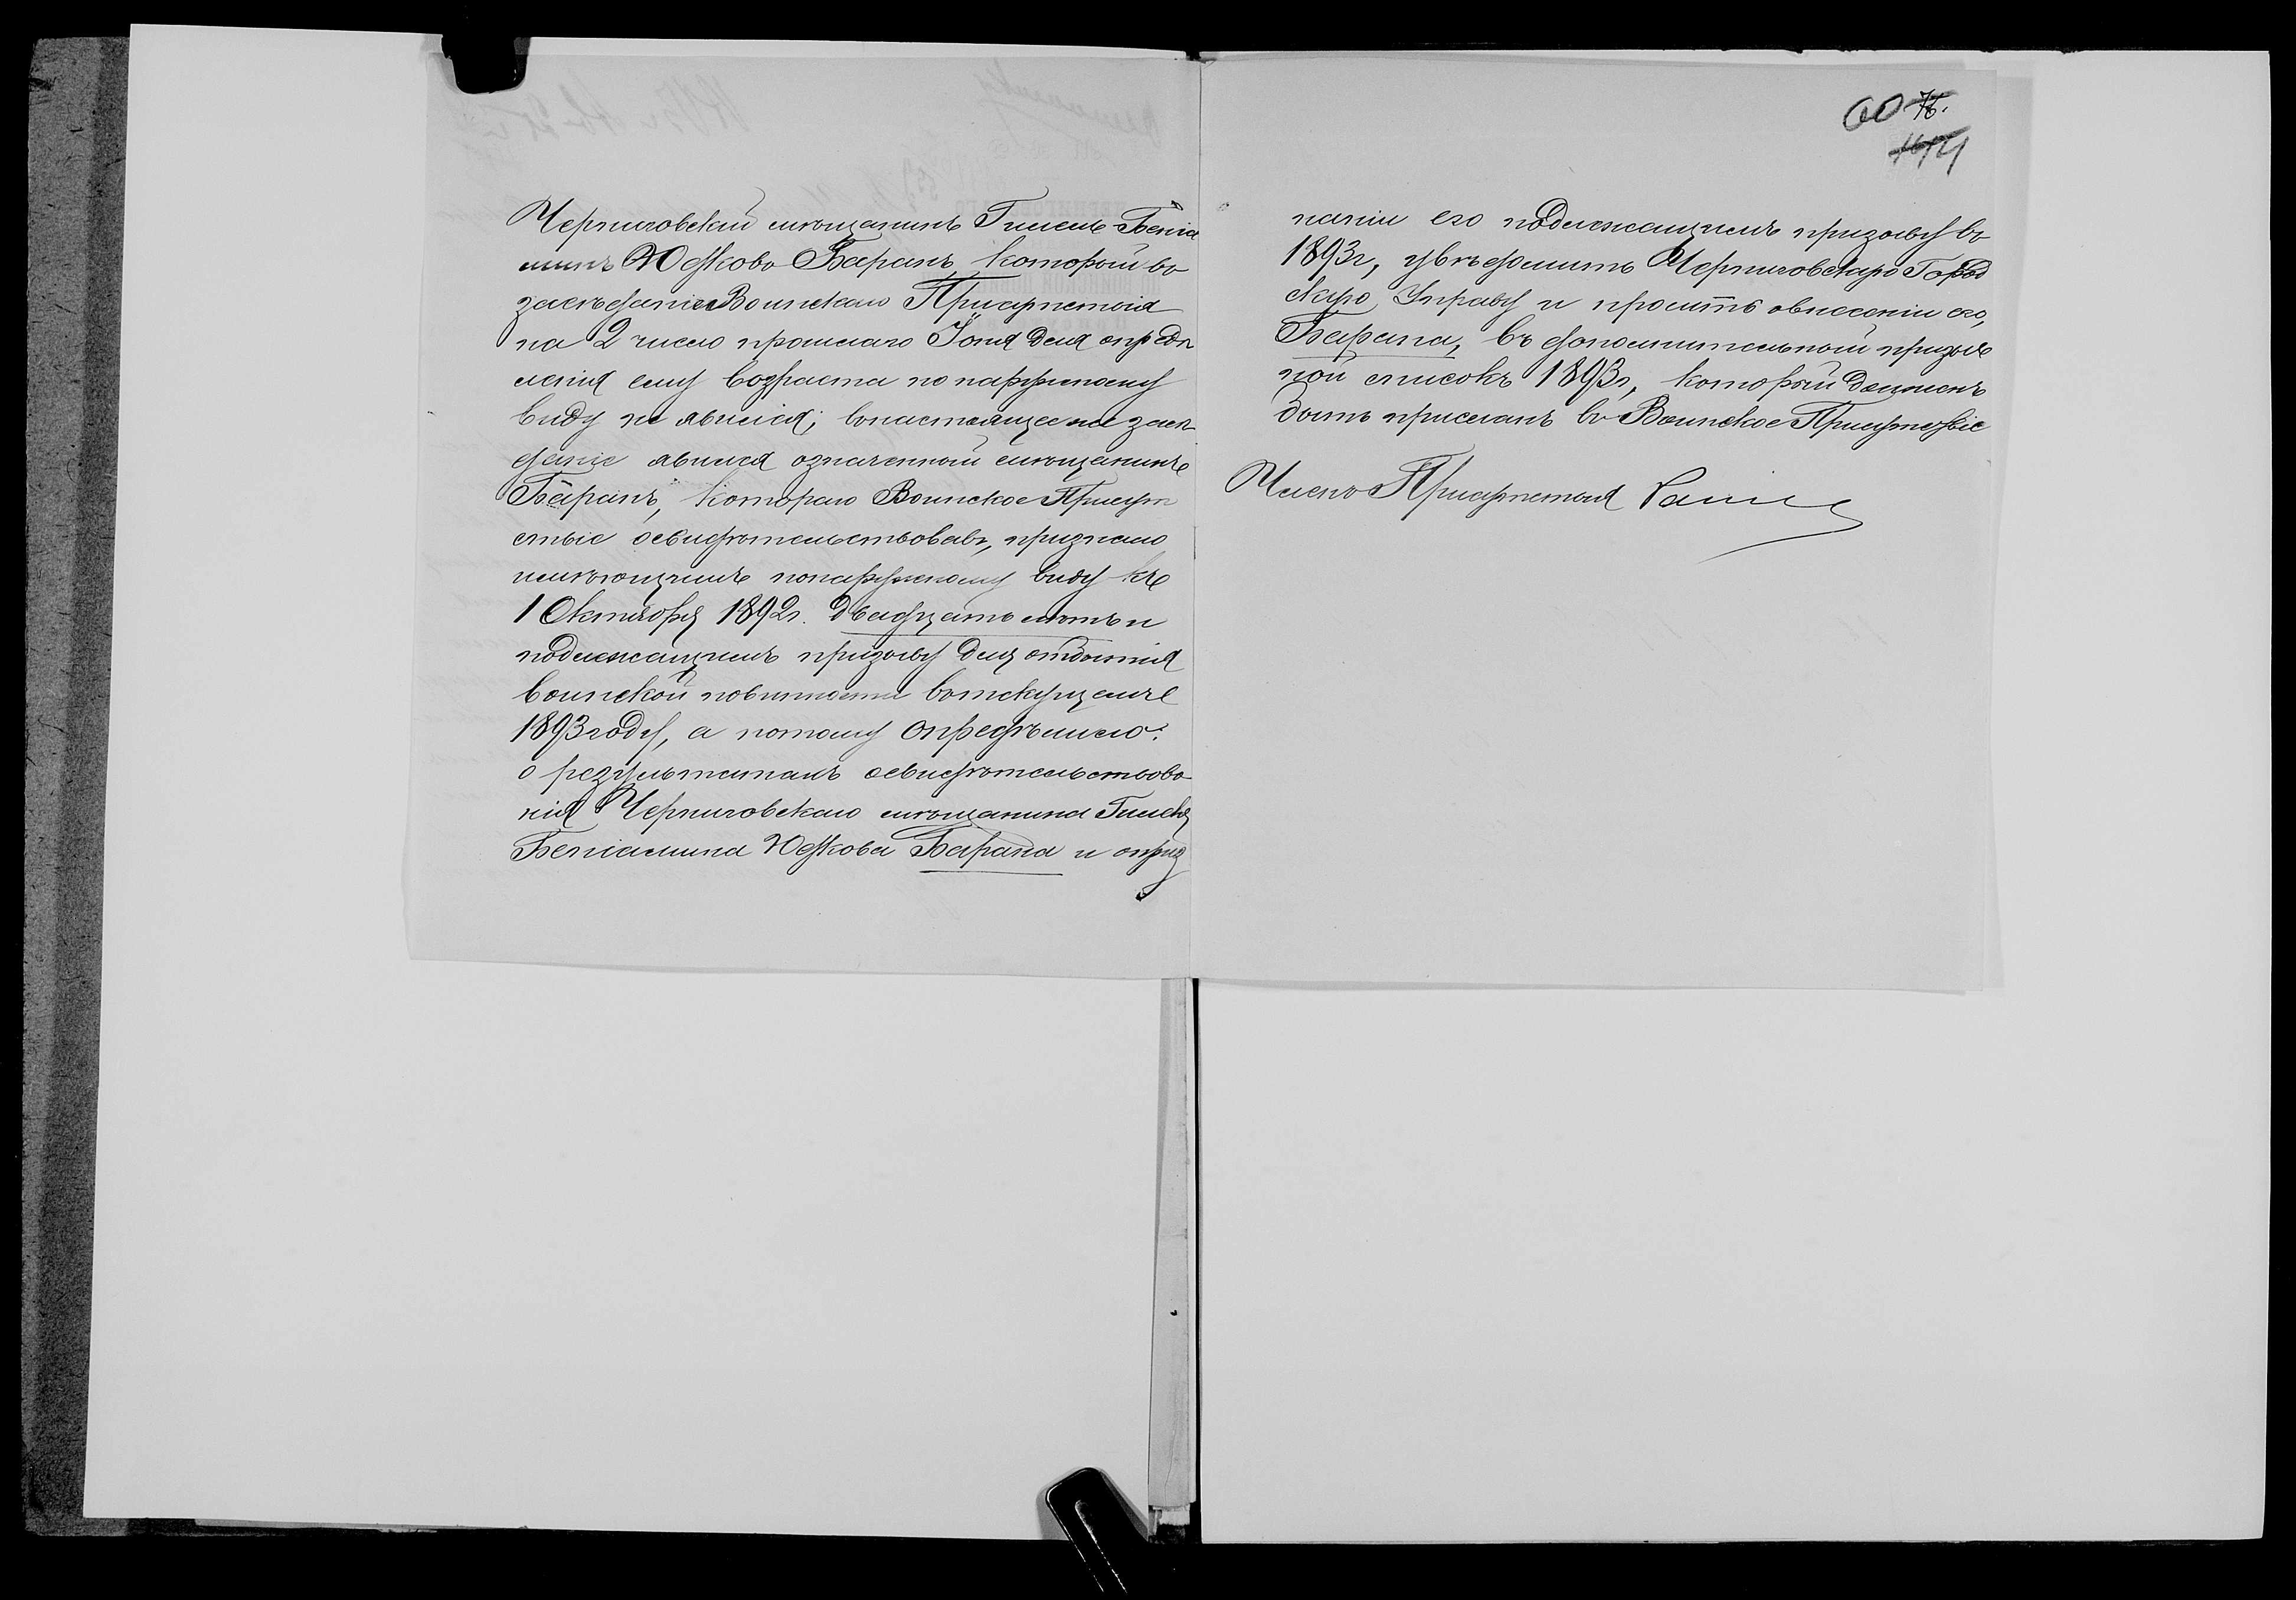 60 76.
Черниговскій мѣщанинъ Гимель-Беніа
минъ Юдковъ Баранъ, который въ
засѣданіе Воинскаго Присутствія
на 2 число прошлаго Іюня для опредѣ
ленія ему возраста по наружному
виду не явился; в настоящее же засѣ
даніе явился означенный мѣщанинъ
Баранъ, котораго Воинское Присут
ствіе освидѣтельствовавъ, признало
имѣющимъ по наружному виду къ
1 Октября 1892 г. двадцать лѣтъ и
подлежащимъ призыву для отбытія
воинской повинности в текущемъ
1893 году, а потому опредѣлило:
о результатахъ освидѣтельствова
нія Черниговскаго мѣщанина Гимеля
Беніамина Юдкова Барана и о приз
наніи его подлежащимъ призыву въ
1893 г, увѣдомить Черниговскую Город
скую Управу и просить о внесеніи его,
Барана, въ дополнительный призыв
ной списокъ 1893 г, который долженъ
быть присланъ въ Воинское Присутствіе
Членъ Присутствія